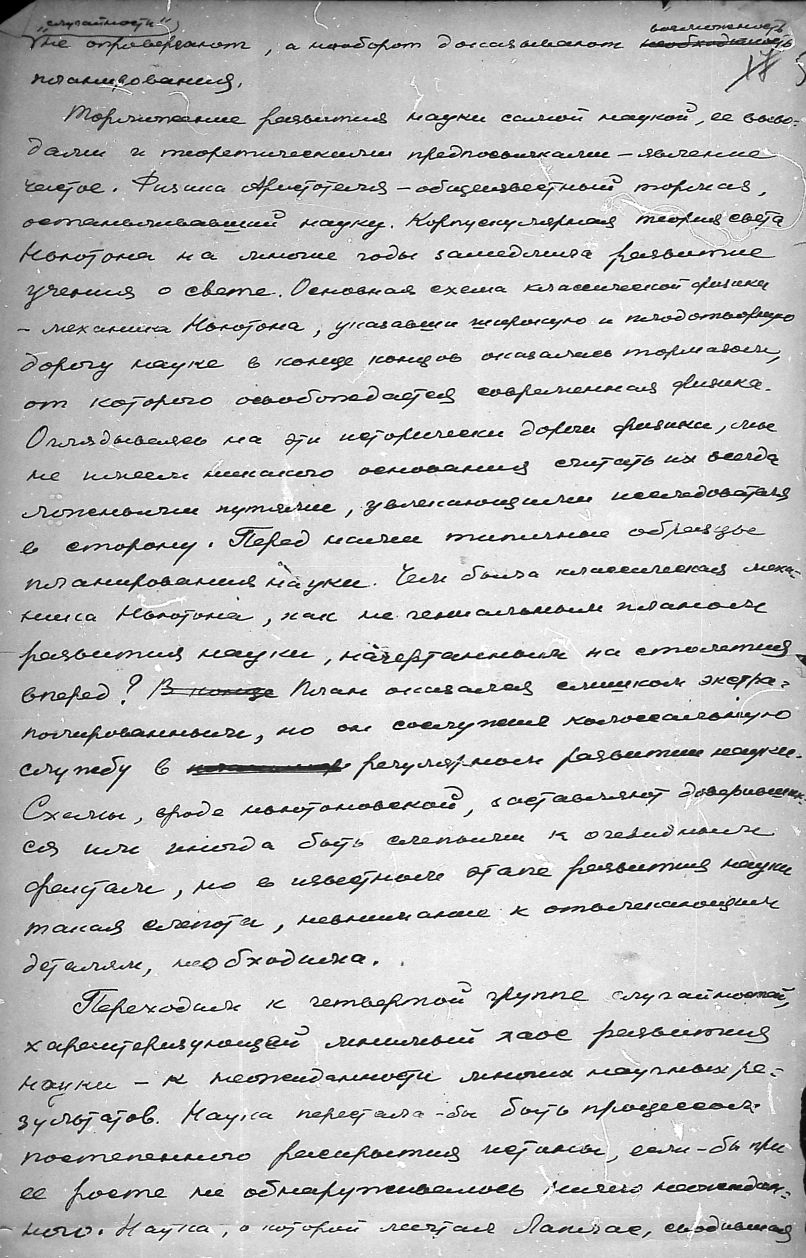 "случайности"
не опровергают, а наоборот доказывают возможность необходимость
17
планирования.
Торможение развития науки самой наукой, ее выво-
дами и теоретическими предпосылками – явление
частое. Физика Аристотеля – общеизвестный тормаз,
останавливавший науку. Корпускулярная теория света
Ньютона на многие годы замедлила развитие
учения о свете. Основная схема классической физики
– механика Ньютона, указавши широкую и плодотворную
дорогу науке в конце концов оказалась тормазом,
от которого освобождается современная физика.
Оглядываясь на эти исторически дороги физики, мы
не имеем никакого основания считать их всегда
ложными путями, увлекающими исследователя
в сторону. Перед нами типичные образцы
планирования науки. Чем была классическая меха-
ника Ньютона, как не гениальным планом
развития науки, начертанным на столетия
вперед? В конце План оказался слишком экстра-
полированным, но он сослужил колоссальную
службу в регулярном развитии науки.
Схемы, вроде ньютоновской, заставляют доверивших-
ся им иногда быть слепыми к очевидным
фактам, но в известном этапе развития науки
такая слепота, невнимание к отвлекающим
деталям, необходима.
Переходим к четвертой группе случайностей,
характеризующей мнимый хаос развития
науки – к неожиданности многих научных ре-
зультатов. Наука перестала-бы быть процессом
постепенного раскрытия истины, если-бы при
ее росте не обнаруживалось ничего неожидан-
ного. Наука, о которой мечтал Лаплас, сводившая